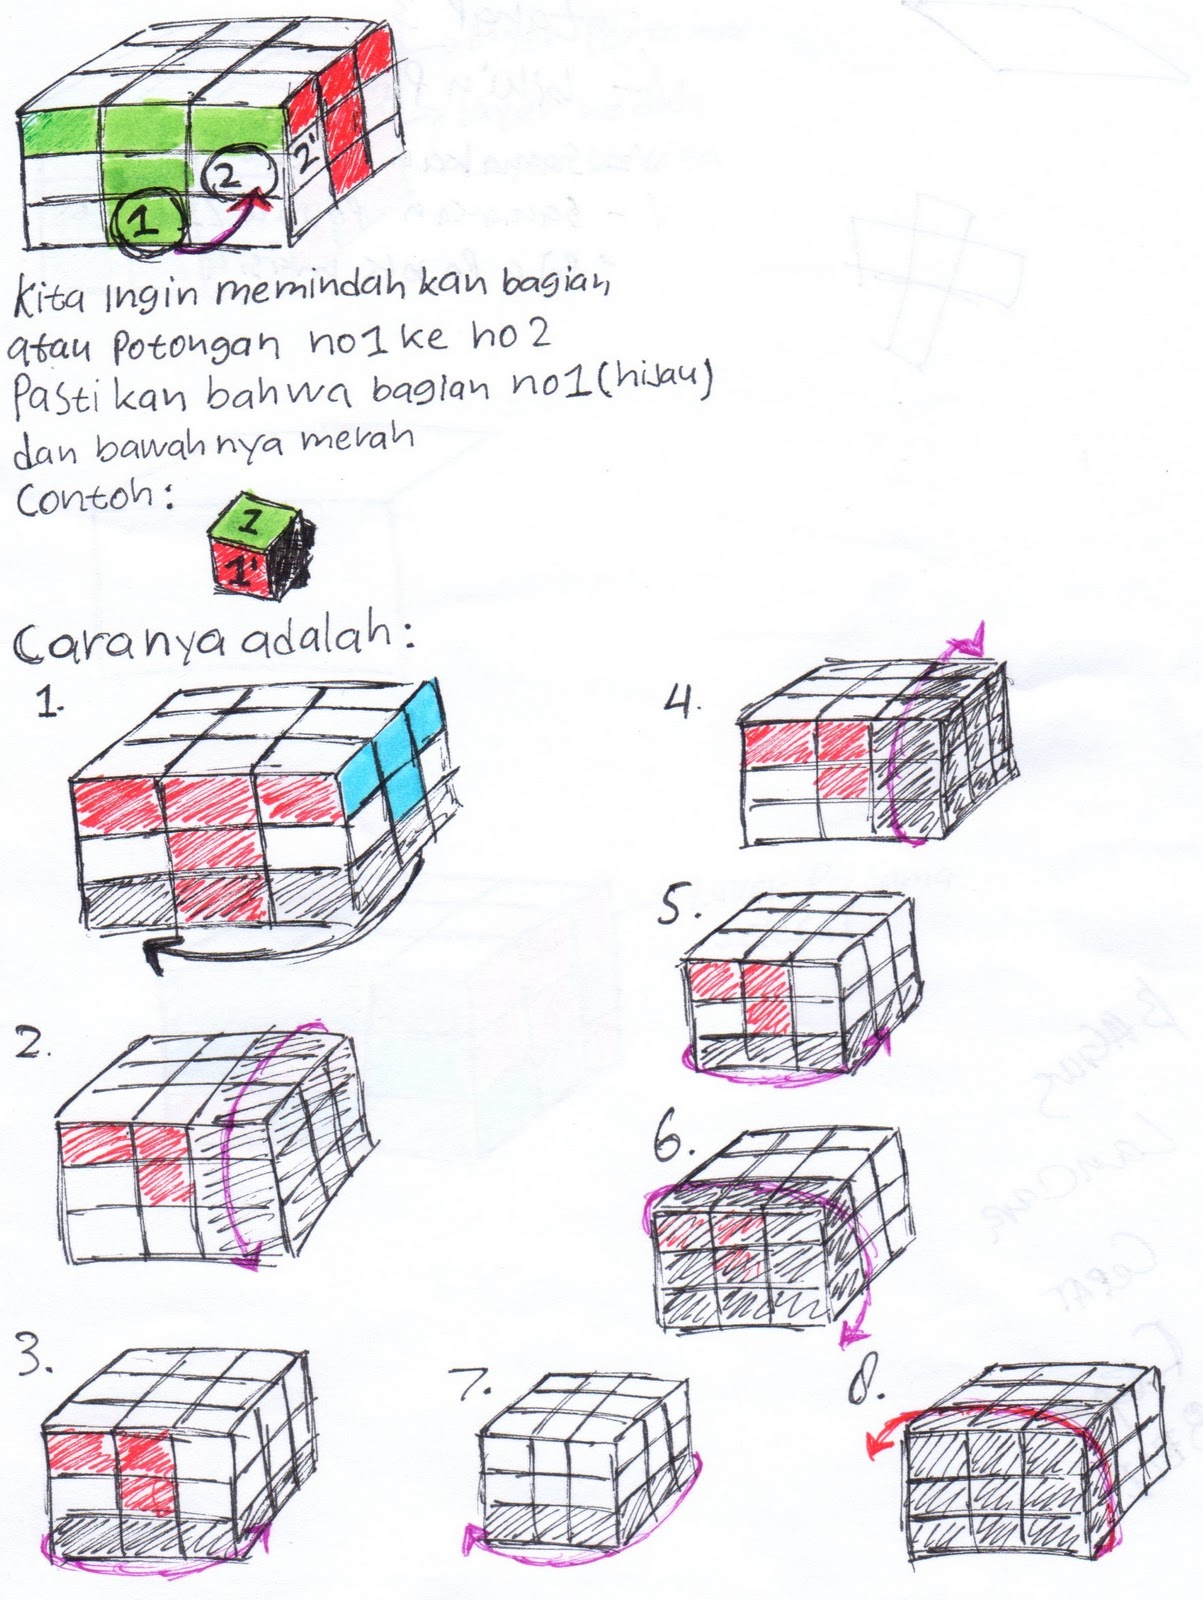 2'
2
1
Kita Ingin memindah kan bagian
atau Potongan no 1 ke no 2
Pasti kan bahwa bagian no 1 (hijau)
dan bawah nya merah
Contoh:
1
1'
Caranya adalah:
1.
2.
3.
4.
5.
6.
7.
8.